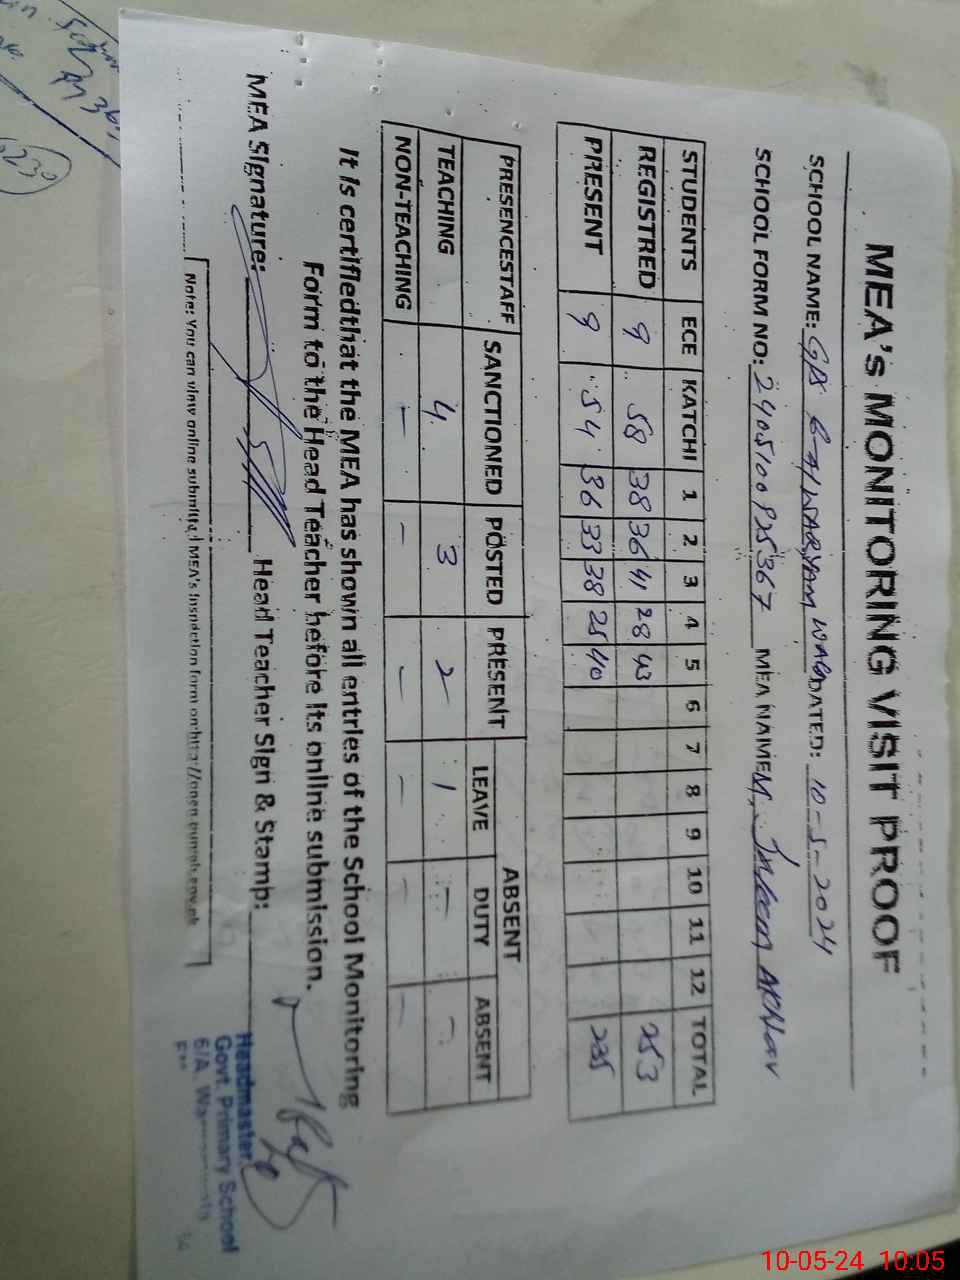 MEA's MONITORING VISIT PROOF
SCHOOL NAME: GPS 6-A/WARYAM WALA DATED: 10-5-2024
SCHOOL FORM NO: 2405100925367 MEA NAME M. Akhtar
STUDENTS ECE KATCHI 1 2 3 4 5 6 7 8 9 10 11 12 TOTAL
REGISTRED 9 58 38 36 41 28 43 253
PRESENT 9 54 36 33 38 25 40 235
PRESENCESTAFF SANCTIONED POSTED PRESENT ABSENT
LEAVE DUTY ABSENT
TEACHING 4 3 2 1 - -
NON-TEACHING - - - - - -
It is certifiedthat the MEA has shown all entries of the School Monitoring
Form to the Head Teacher before its online submission.
MEA Signature: Head Teacher Sign & Stamp:
Headmaster
Govt. Primary School
6/A. 
Note: You can view online submitted MEA's Inspection form on:http://open.punjab.gov.pk
10-05-24 10:05